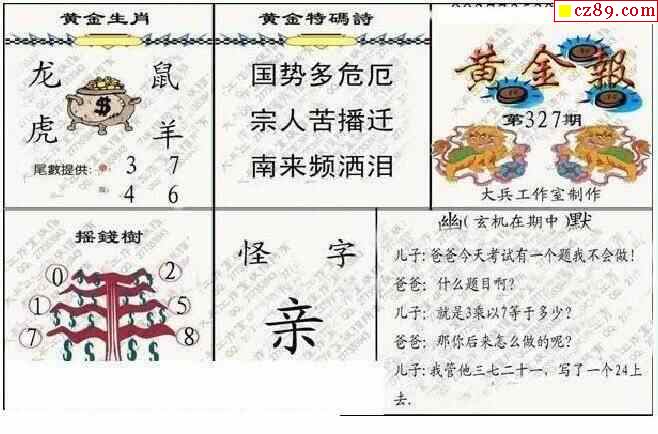 cz89.com
黄金生肖
龙 鼠
虎 羊
$
尾數提供：
3 7
4 6
黄金特碼詩
国势多危厄
宗人苦播迁
南来频洒泪
黄金報
第327期
大兵工作室制作
摇錢樹
0 2
1 5
7 8
怪 字
亲
幽(玄机在期中)默
儿子:爸爸今天考试有一个题我不会做!
爸爸: 什么题目啊?
儿子: 就是3乘以7等于多少?
爸爸: 那你后来怎么做的呢?
儿子:我管他三七二十一,写了一个24上
去.